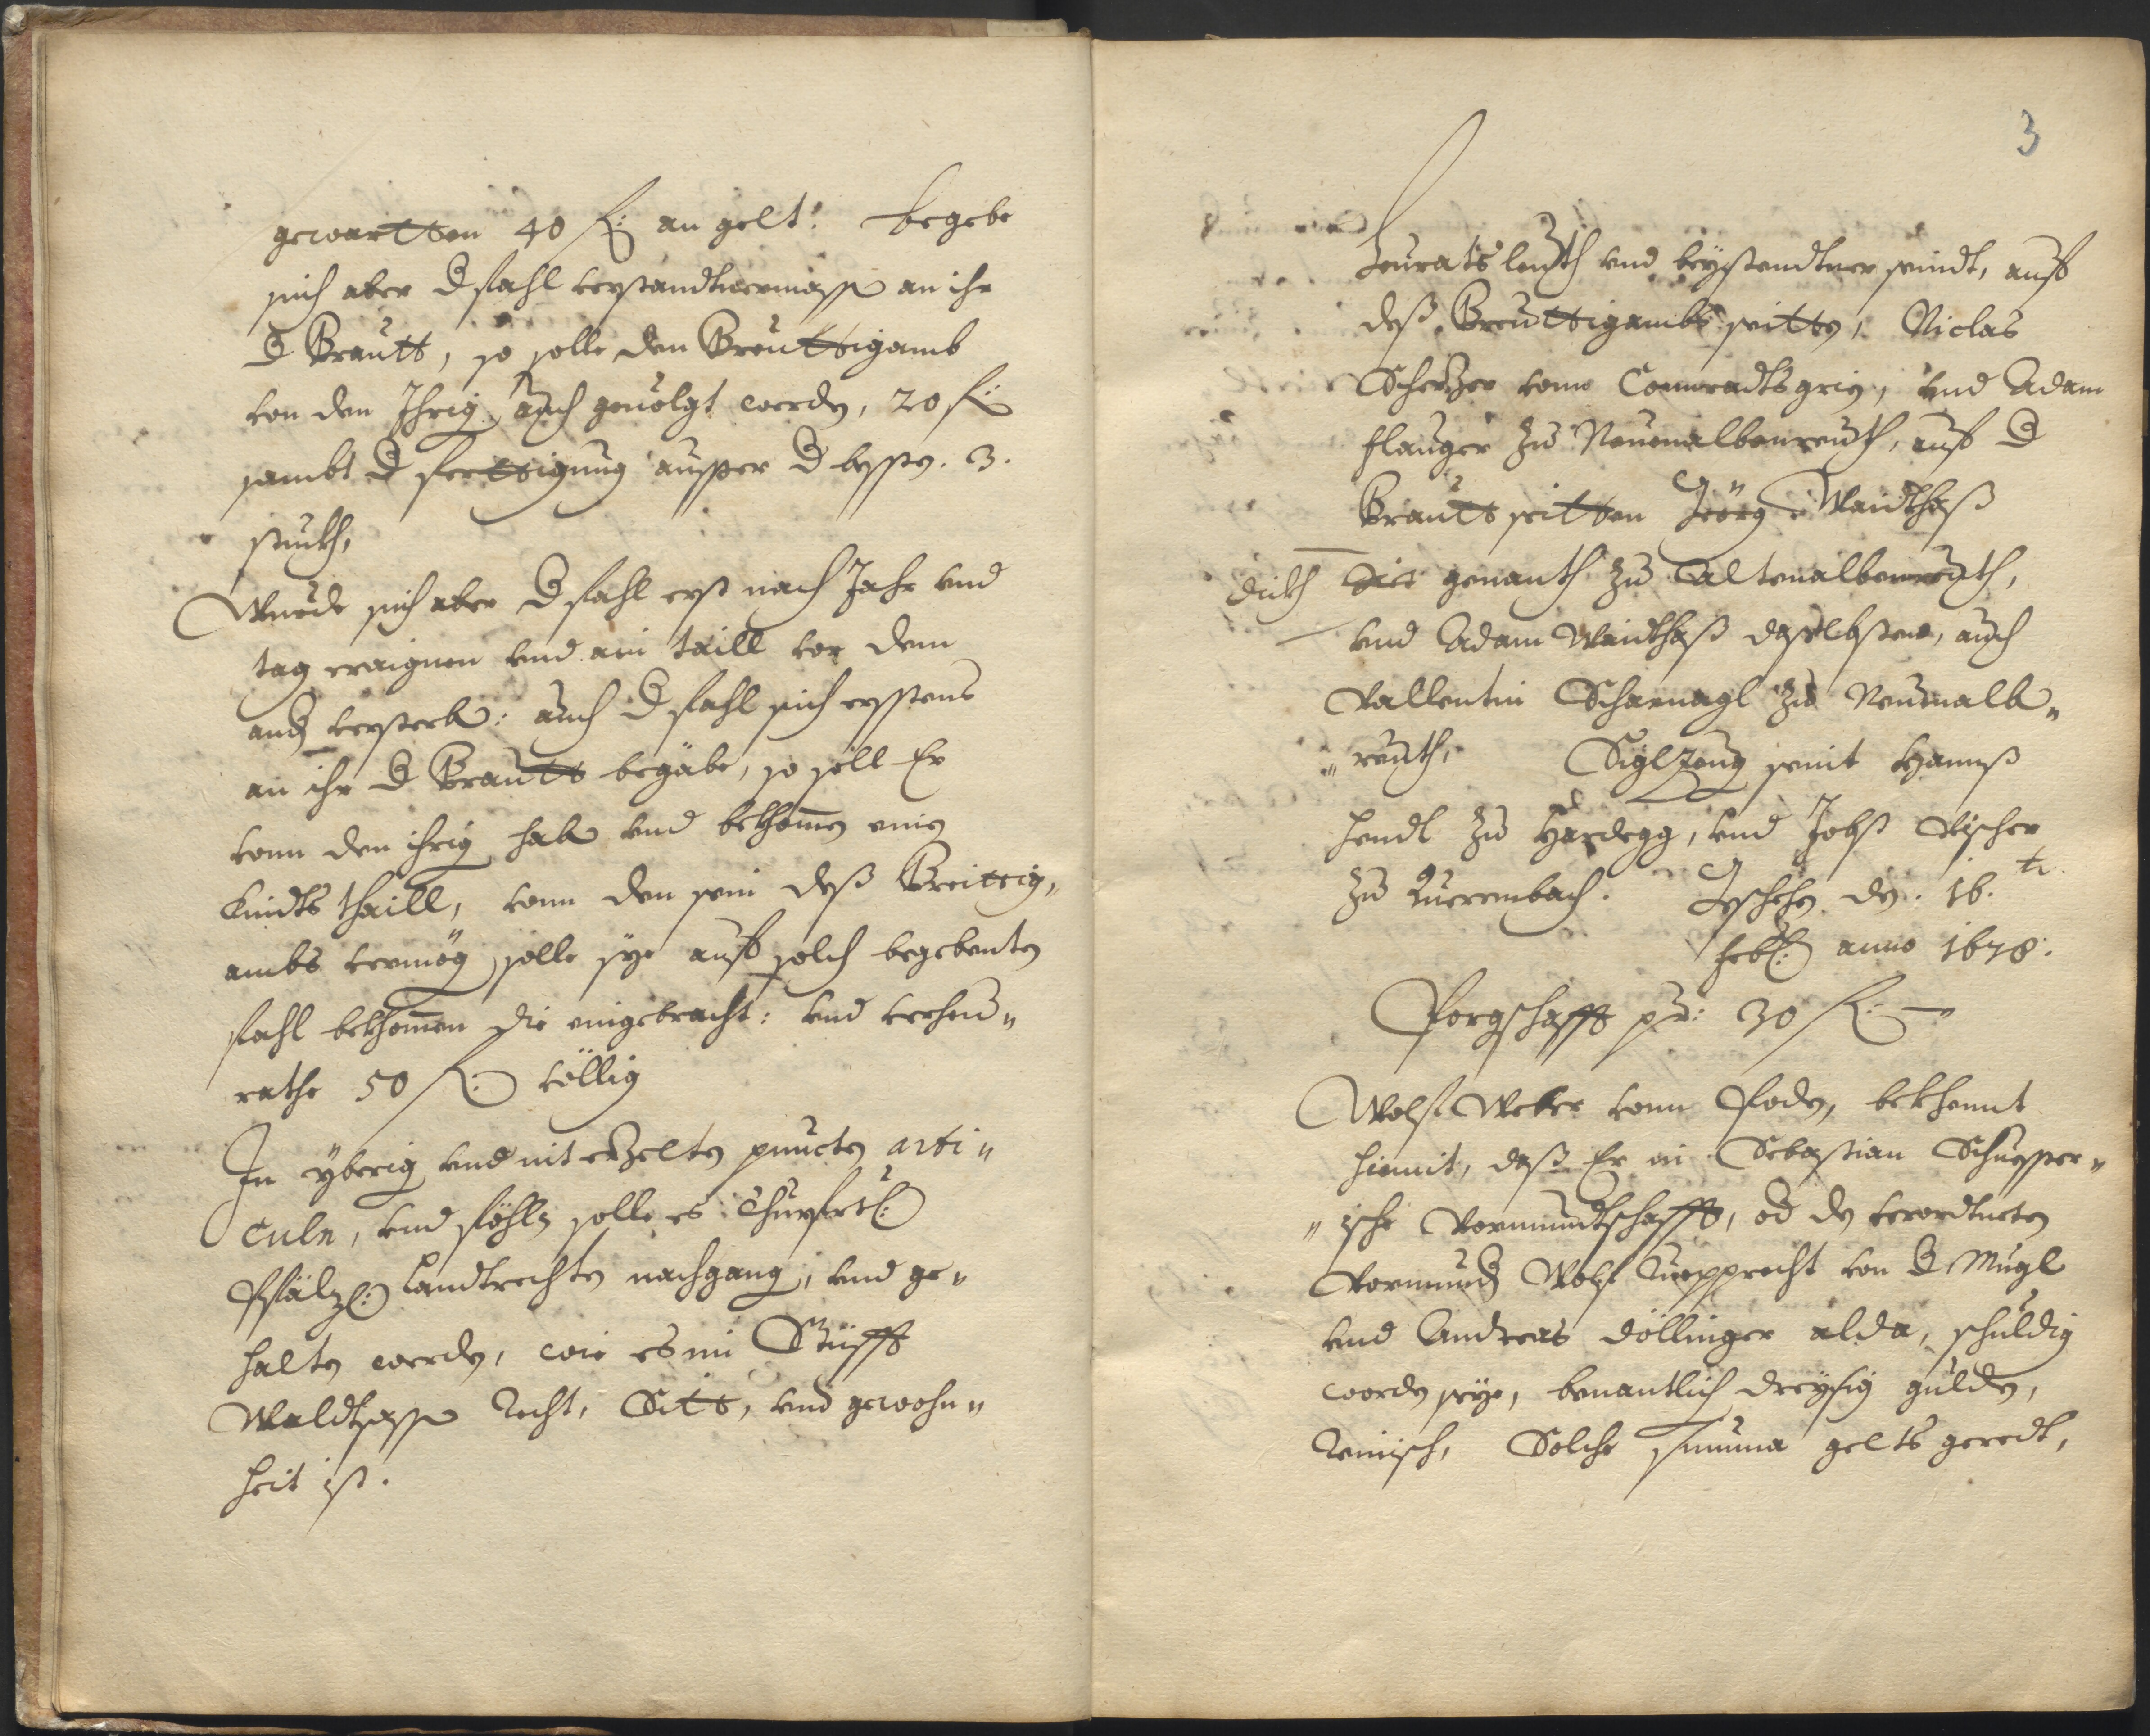 gewartten 40 fl: an gelt: begebe
sich aber d fahl verstandtnermassen an ihr
d Brautt, so solle den Breuttigamb
von den Ihrig auch geuolgt werden, 20 fl:
sambt d fertigung ausser d besten 3.
stuckh,
Wurde sich aber d fahl erst nach Jahr vnd
tag eraignen vnd ain taill vor dem
and versterb: auch d fahl sich erstens
an ihr d Brautt begäbe, so soll Er
vonn den ihrig hab vnd bekhomen ein
Kindts thaill, vonn den sein deß Breittig„
ambs vermög solle sye auf solch begebenten
fahl bekhomen die eingebracht: vnd verheu„
rathe 50 fl: völlig
In yberig vnd nit erzelten puncten arti„
culn, vnd föhln solle es Churfrtl:
Pfälzl: Landtrechten nachgang, vnd ge„
halten werden, wie es im Stüfft
Waldtsassen Recht, Sitt, vnd gewohn„
heit ist.
3
Heuratsleuth vnd beystendtner seindt, auf
deß Breuttigambs seitten, Niclas
Scherzer vonn Connradtsgrien, vnd Adam
Flauger zu Neuenalbenreuth, auf d
Brautt seitten Jeörg Waidthaß
dickh
genanth zu Altenalbenreuth,
vnd Adam Waidthaß daselbsten, auch
Vallentin Scharnagl zu Neuenalb„
„reuth, Siglzeug seint Hannß
Hendl zu Hardegg, vnd Jobst Fischer
zu Querenbach. Geschehen den 16. t.
Feb: anno 1678.
Porgschafft pr: 30 fl: —
Wolf Weber vonn Poden, bekhennt
hiemit, daß Er in Sebastian Schuster„
„ische Vormundtschafft, od den verordtneten
Vormund Wolf Ruepprecht von d Mugl
vnd Andreas Döllinger alda, schuldig
worden seye, benantlich dreysig gulden,
Reinisch, Solche summa gelts geredt,